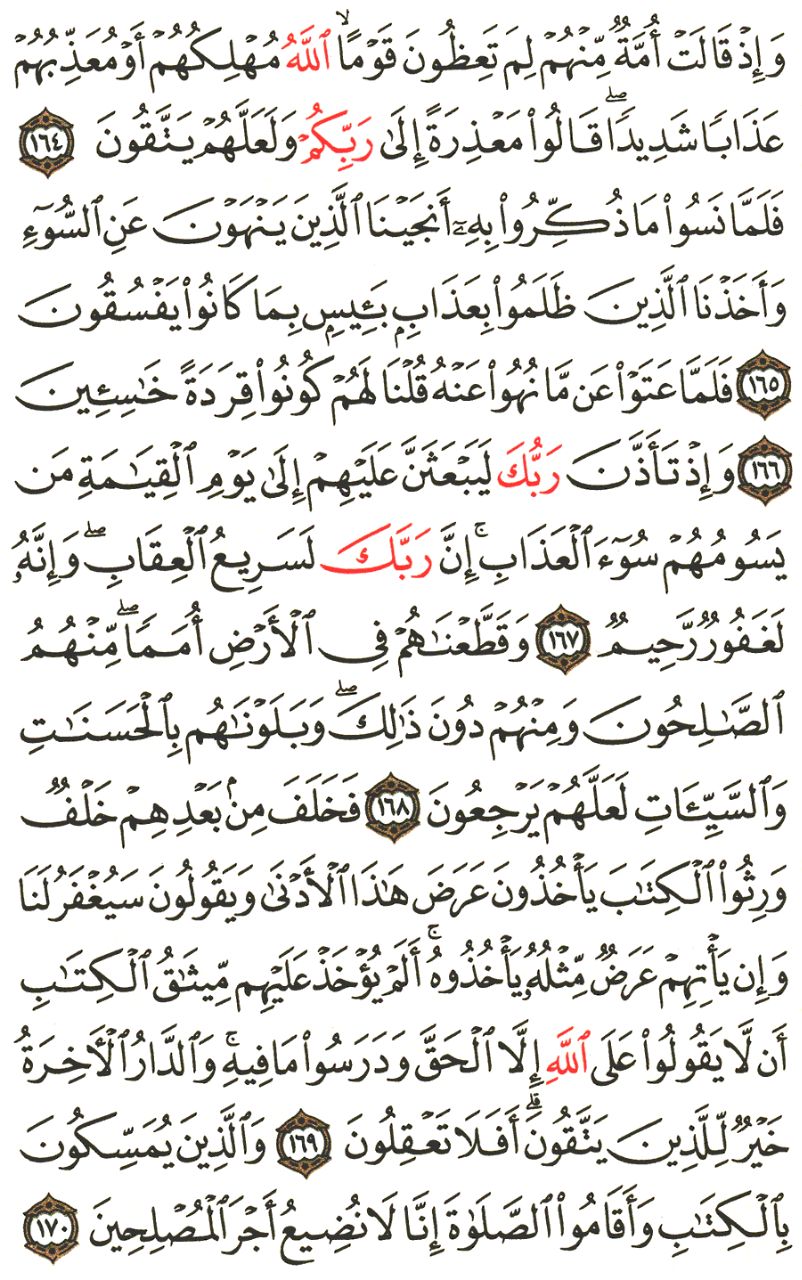 وَإِذۡ قَالَتۡ أُمَّةٞ مِّنۡهُمۡ لِمَ تَعِظُونَ قَوۡمًا ٱللَّهُ مُهۡلِكُهُمۡ أَوۡ مُعَذِّبُهُمۡ
عَذَابٗا شَدِيدٗاۖ قَالُواْ مَعۡذِرَةً إِلَىٰ رَبِّكُمۡ وَلَعَلَّهُمۡ يَتَّقُونَ ١٦٤
فَلَمَّا نَسُواْ مَا ذُكِّرُواْ بِهِۦٓ أَنجَيۡنَا ٱلَّذِينَ يَنۡهَوۡنَ عَنِ ٱلسُّوٓءِ
وَأَخَذۡنَا ٱلَّذِينَ ظَلَمُواْ بِعَذَابِۭ بَـِٔيسِۭ بِمَا كَانُواْ يَفۡسُقُونَ
١٦٥ فَلَمَّا عَتَوۡاْ عَن مَّا نُهُواْ عَنۡهُ قُلۡنَا لَهُمۡ كُونُواْ قِرَدَةً خَٰسِـِٔينَ
١٦٦ وَإِذۡ تَأَذَّنَ رَبُّكَ لَيَبۡعَثَنَّ عَلَيۡهِمۡ إِلَىٰ يَوۡمِ ٱلۡقِيَٰمَةِ مَن
يَسُومُهُمۡ سُوٓءَ ٱلۡعَذَابِۚ إِنَّ رَبَّكَ لَسَرِيعُ ٱلۡعِقَابِۖ وَإِنَّهُۥ
لَغَفُورٞ رَّحِيمٞ ١٦٧ وَقَطَّعۡنَٰهُمۡ فِي ٱلۡأَرۡضِ أُمَمٗاۖ مِّنۡهُمُ
ٱلصَّٰلِحُونَ وَمِنۡهُمۡ دُونَ ذَٰلِكَۖ وَبَلَوۡنَٰهُم بِٱلۡحَسَنَٰتِ
وَٱلسَّيِّـَٔاتِ لَعَلَّهُمۡ يَرۡجِعُونَ ١٦٨ فَخَلَفَ مِنۢ بَعۡدِهِمۡ خَلۡفٞ
وَرِثُواْ ٱلۡكِتَٰبَ يَأۡخُذُونَ عَرَضَ هَٰذَا ٱلۡأَدۡنَىٰ وَيَقُولُونَ سَيُغۡفَرُ لَنَا
وَإِن يَأۡتِهِمۡ عَرَضٞ مِّثۡلُهُۥ يَأۡخُذُوهُۚ أَلَمۡ يُؤۡخَذۡ عَلَيۡهِم مِّيثَٰقُ ٱلۡكِتَٰبِ
أَن لَّا يَقُولُواْ عَلَى ٱللَّهِ إِلَّا ٱلۡحَقَّ وَدَرَسُواْ مَا فِيهِۚ وَٱلدَّارُ ٱلۡأٓخِرَةُ
خَيۡرٞ لِّلَّذِينَ يَتَّقُونَۚ أَفَلَا تَعۡقِلُونَ ١٦٩ وَٱلَّذِينَ يُمَسِّكُونَ
بِٱلۡكِتَٰبِ وَأَقَامُواْ ٱلصَّلَوٰةَ إِنَّا لَا نُضِيعُ أَجۡرَ ٱلۡمُصۡلِحِينَ ١٧٠